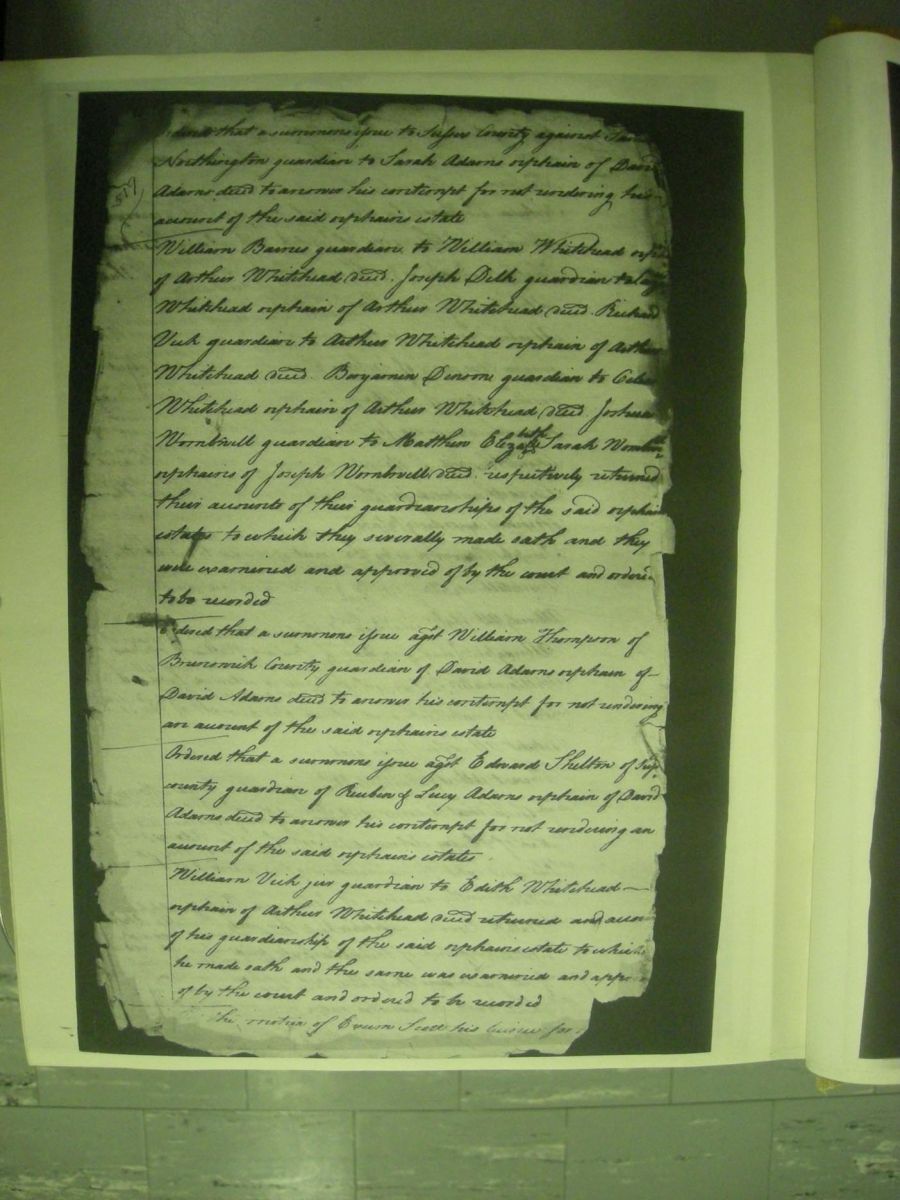 that a summons issue to Sussex County against
Northington guardian to Sarah Adams orphain of David
Adams deced to answer his contempt for not rendering his
account of the said orphains estate
William Barnes guardian to William Whitehead
of Arthur Whitehead deced. Joseph Delk guardian to
Whitehead orphain of Arthur Whitehead deced. Richard
Vick guardian to Arthur Whitehead orphain of Arthur
Whitehead deced. Benjamin guardian to
Whitehead orphain of Arthur Whitehead deced Joshua
Wombwell guardian to Matthew Elizabeth Sarah
orphains of Joseph Wombwell deced. respectively returned
their accounts of their guardianships of the said orphain
estates to which they severally made oath and they
were examined and approved of by the court and ordered
to be recorded
Ordered that a summons issue agst William Thompson of
Brunswick County guardian of David Adams orphain of
David Adams deced to answer his contempt for not rendering
an account of the said orphains estate
Ordered that a summons issue agst Edward Shelton of
county guardian of Reuben & Lucy Adams orphain of David
Adams deced to answer his contempt for not rendering an
account of the said orphains estates
William Vick junr guardian to Edith Whitehead
orphain of Arthur Whitehead deced returned and
of his guardianship of the said orphains estate to which
he made oath and the same was examined and
of by the court and ordered to be recorded
the motion of Exum Scott his